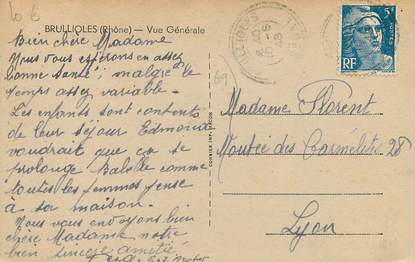 10 €
BRULLIOLES (Rhône) — Vue Générale
Bien chère Madame
Nous vous espérons en assez
bonne santé malgré le
temps assez variable.
Les enfants sont contents
de leur séjour Edmond
voudrait que ça se
prolonge Babette comme
toutes les femmes pense
à sa maison.
Nous vous envoyons bien
chère Madame notre
bien sincère amitié
BRULLIOLES
5F
RF
Madame Florent
Montée des Carmélites 28
Lyon